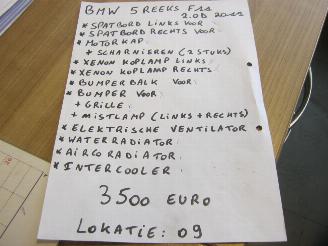 BMW 5 REEKS F11
2.0D 2011
* SPATBORD LINKS VOOR
* SPATBORD RECHTS VOOR
* MOTORKAP
+ SCHARNIEREN (2 STUKS)
* XENON KOPLAMP LINKS
* XENON KOPLAMP RECHTS
* BUMPERBALK VOOR
* BUMPER VOOR
+ GRILLE
+ MISTLAMP (LINKS + RECHTS)
* ELEKTRISCHE VENTILATOR
* WATERRADIATOR
* AIRCO RADIATOR
* INTERCOOLER
3500 EURO
LOKATIE: 09